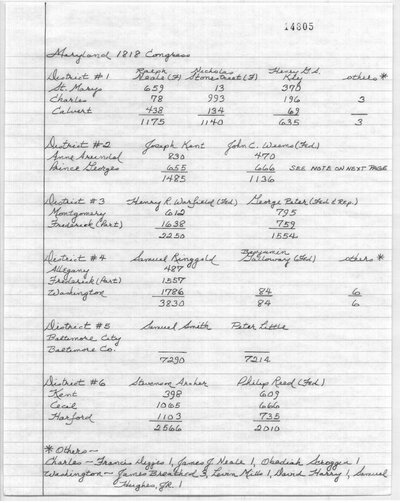 14805
Maryland 1818 Congress
District #1 Raphael Neale (F) Nicholas Stonestreet (F) Henry G.S. Key others *
St. Marys 659 13 370
Charles 78 993 196 3
Calvert 438 134 69
1175 1140 635 3
District #2 Joseph Kent John C. Weems (Fed)
Anne Arundel 830 470
Prince Georges 655 666 SEE NOTE ON NEXT PAGE
1485 1136
District #3 Henry R. Warfield (Fed) George Peter (Fed & Rep)
Montgomery 612 795
Frederick (Part) 1638 759
2250 1554
District #4 Samuel Ringgold Benjamin Galloway (Fed) others *
Allegany 487
Frederick (Part) 1557
Washington 1786 84 6
3830 84 6
District #5 Samuel Smith Peter Little
Baltimore City
Baltimore Co.
7290 7214
District #6 Stevenson Archer Philip Reed (Fed)
Kent 398 609
Cecil 1065 666
Harford 1103 735
2566 2010
* Others ~
Charles ~ Francis Digges 1, James J. Neale 1, Obediah Scroggin 1
Washington ~ James Breathed 3, Levin Mills 1, David Harry 1, Samuel
Hughes, Jr. 1